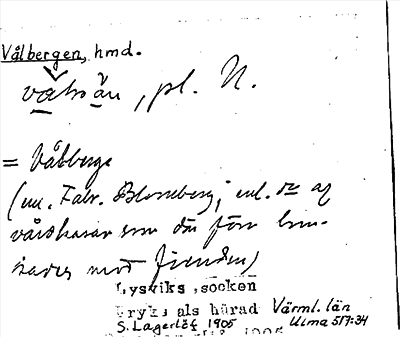 Vålbergen, hmd.
, pl. N.
= Vålberge
(enl. Fabr. Blomberg; enl. de af
vårdkasar som där förr brun-
mot fienden)
Lysviks socken
Fryksdals härad Värml. län
S. Lagerlöf 1905 Ulma 517:34